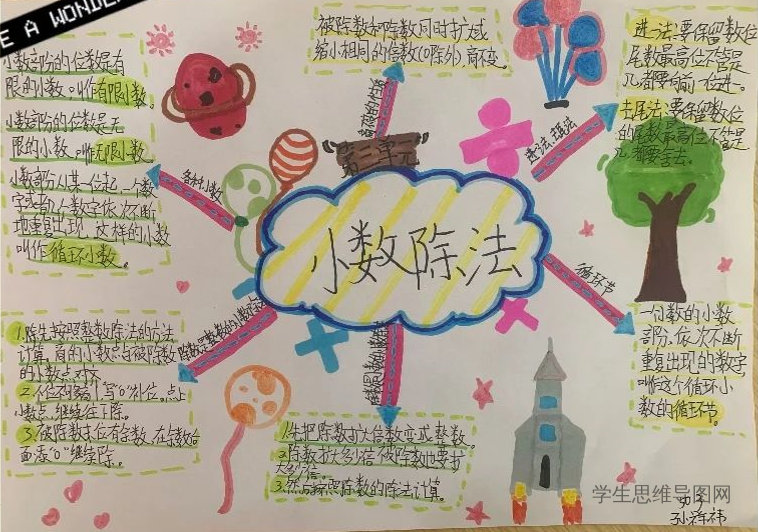 E A WONDE
小数部分的位数是有
限的小数。叫作有限小数。
小数部分的位数是无
限的小数。叫无限小数。
小数部分从某一位起，一个数
字或者几个数字依次不断
地重复出现。这样的小数
叫作循环小数。
被除数和除数同时扩或
缩小相同的倍数(0除外)，商不变。
进一法：要保留数位
尾数最高位不管是
几都要向前一位进。
去尾法：要保留数位
的尾数最高位不管是
几都要舍去。
第三单元
进一法、去尾法
各种小数
小数除法
循环节
一个数的小数
部分。依次不断
重复出现的数字，
叫作这个循环小
数的循环节。
1.除先按照整数除法的方法
计算，商的小数点与被除数
的小数点对齐
小数点，继续往下除。
3.被除数末位有余数，在余数后
面添"0"继续除。
1.先把除数扩大倍数变成整数。
2.除数扩大多少倍被除数也要扩
大多少倍。
3.然后按照除数的除法计算。
学生思维导图网